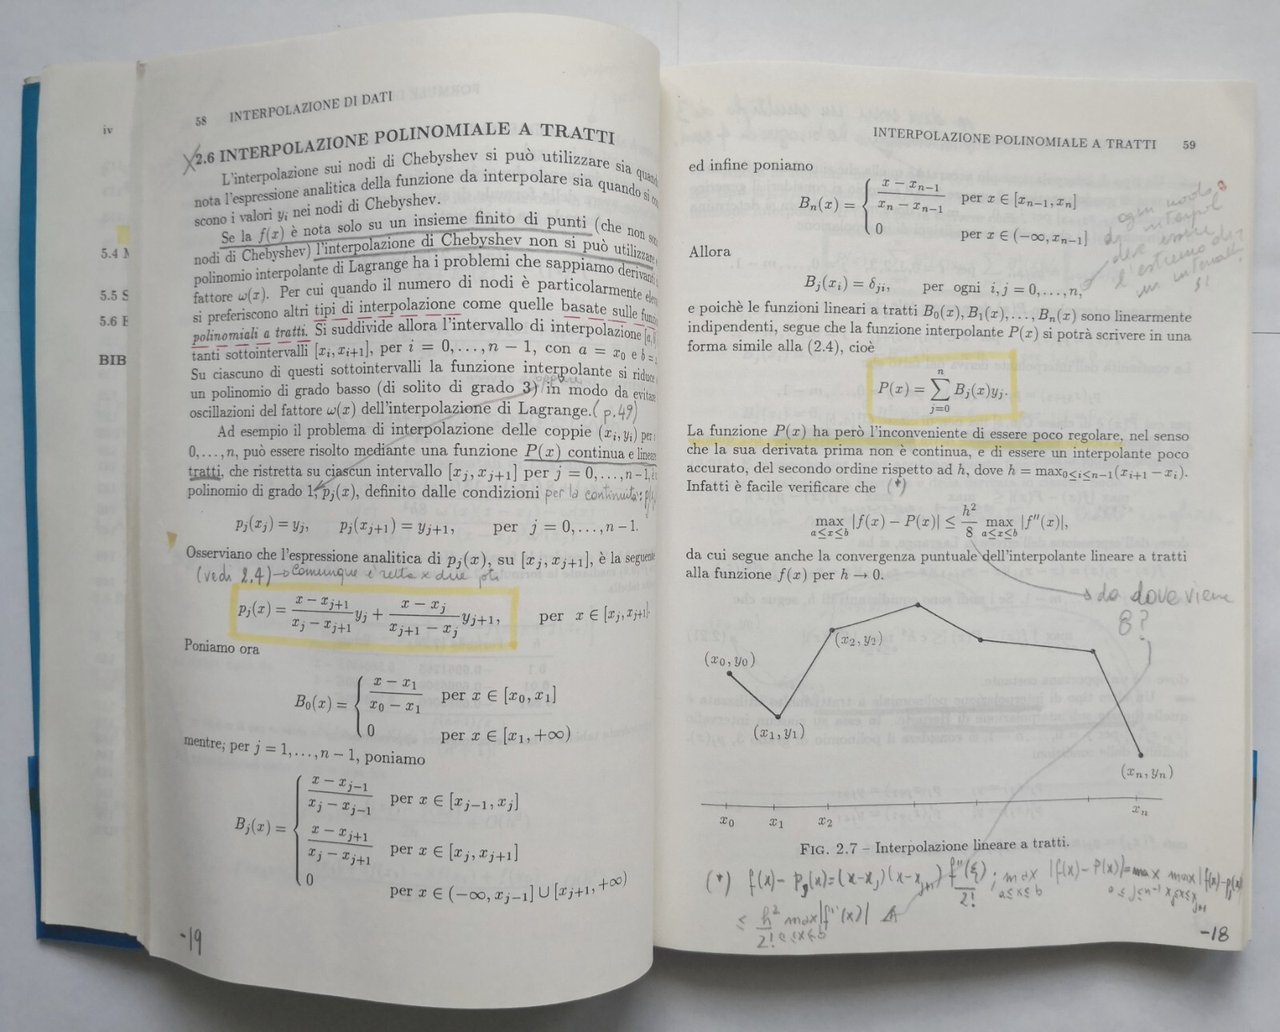 iv
5.4
5.5 S
5.6 E
BIB
58 INTERPOLAZIONE DI DATI
2.6 INTERPOLAZIONE POLINOMIALE A TRATTI
L'interpolazione sui nodi di Chebyshev si può utilizzare sia quan
nota l'espressione analitica della funzione da interpolare sia quando si co
scono i valori yᵢ nei nodi di Chebyshev.
Se la f(x) è nota solo su un insieme finito di punti (che non
nodi di Chebyshev) l'interpolazione di Chebyshev non si può utilizzare
polinomio interpolante di Lagrange ha i problemi che sappiamo derivan
fattore ω(x). Per cui quando il numero di nodi è particolarmente ele
si preferiscono altri tipi di interpolazione come quelle basate sulle funz
polinomiali a tratti. Si suddivide allora l'intervallo di interpolazione [a,
tanti sottointervalli [xᵢ, xᵢ₊₁], per i = 0, . . . , n − 1, con a = x₀ e b =
Su ciascuno di questi sottointervalli la funzione interpolante si riduce
oppure
un polinomio di grado basso (di solito di grado 3) in modo da evitare
oscillazioni del fattore ω(x) dell'interpolazione di Lagrange. (p.49)
Ad esempio il problema di interpolazione delle coppie (xᵢ, yᵢ) per
0, . . . , n, può essere risolto mediante una funzione P(x) continua e lineare
tratti, che ristretta su ciascun intervallo [xⱼ, xⱼ₊₁] per j = 0, . . . , n−1, è
polinomio di grado 1, pⱼ(x), definito dalle condizioni per la continuità:
pⱼ(xⱼ) = yⱼ, pⱼ(xⱼ₊₁) = yⱼ₊₁, per j = 0, . . . , n−1.
Osserviano che l'espressione analitica di pⱼ(x), su [xⱼ, xⱼ₊₁], è la seguente
(vedi 2.4) → Comunque è retta x due pti
pⱼ(x) = (x − xⱼ₊₁)/(xⱼ − xⱼ₊₁) yⱼ + (x − xⱼ)/(xⱼ₊₁ − xⱼ) yⱼ₊₁, per x ∈ [xⱼ, xⱼ₊₁].
Poniamo ora
B₀(x) = { (x − x₁)/(x₀ − x₁) per x ∈ [x₀, x₁]
0 per x ∈ [x₁, +∞)
mentre, per j = 1, . . . , n − 1, poniamo
Bⱼ(x) = { (x − xⱼ₋₁)/(xⱼ − xⱼ₋₁) per x ∈ [xⱼ₋₁, xⱼ]
(x − xⱼ₊₁)/(xⱼ − xⱼ₊₁) per x ∈ [xⱼ, xⱼ₊₁]
0 per x ∈ (−∞, xⱼ₋₁] ∪ [xⱼ₊₁, +∞)
-19
INTERPOLAZIONE POLINOMIALE A TRATTI 59
ed infine poniamo
Bₙ(x) = { (x − xₙ₋₁)/(xₙ − xₙ₋₁) per x ∈ [xₙ₋₁, xₙ]
0 per x ∈ (−∞, xₙ₋₁]
ogni nodo
di interpol
deve essere
l'estremo di
un intervallo
sì
Allora
Bⱼ(xᵢ) = δⱼᵢ, per ogni i, j = 0, . . . , n,
e poichè le funzioni lineari a tratti B₀(x), B₁(x), . . . , Bₙ(x) sono linearmente
indipendenti, segue che la funzione interpolante P(x) si potrà scrivere in una
forma simile alla (2.4), cioè
P(x) = ∑ⱼ₌₀ⁿ Bⱼ(x)yⱼ.
La funzione P(x) ha però l'inconveniente di essere poco regolare, nel senso
che la sua derivata prima non è continua, e di essere un interpolante poco
accurato, del secondo ordine rispetto ad h, dove h = max₀≤ᵢ≤ₙ₋₁(xᵢ₊₁ − xᵢ).
Infatti è facile verificare che (*)
max a≤x≤b |f(x) − P(x)| ≤ h²/8 max a≤x≤b |f″(x)|,
da cui segue anche la convergenza puntuale dell'interpolante lineare a tratti
alla funzione f(x) per h → 0.
da dove viene
8?
(x₀, y₀)
(x₁, y₁)
(x₂, y₂)
(xₙ, yₙ)
x₀ x₁ x₂ xₙ
FIG. 2.7 – Interpolazione lineare a tratti.
(*) f(x) − pⱼ(x) = (x−xⱼ)(x−xⱼ₊₁) f″(ξ)/2! ; max a≤x≤b |f(x) − P(x)| = max 0≤j≤n-1 max xⱼ≤x≤xⱼ₊₁ |f(x)−pⱼ(x)|
≤ h²/2! max a≤x≤b |f″(x)|
-18